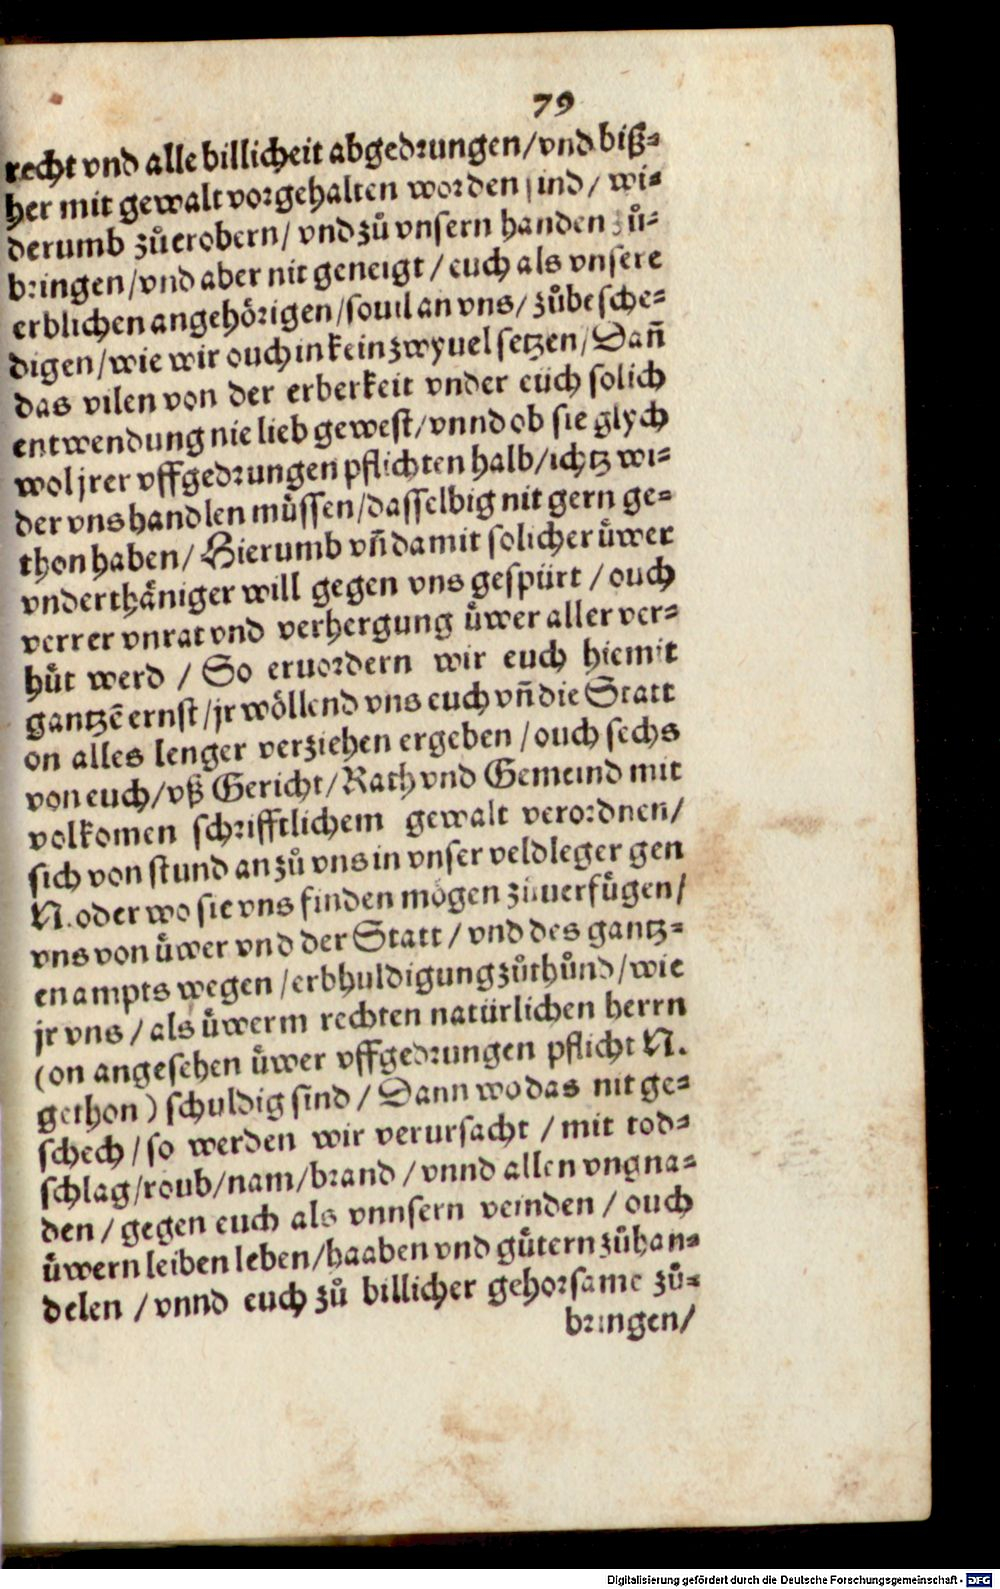 79
recht vnd alle billicheit abgedrungen/vnd biß-
her mit gewalt vorgehalten worden sind/ wi-
derumb zůerobern/ vnd zů vnsern handen zů-
bringen/vnd aber nit geneigt/euch als vnsere
erblichen angehörigen/souil an vns/ zůbesche-
digen/wie wir ouch in kein zwyuel setzen/Dañ
das vilen von der erberkeit vnder euch solich
entwendung nie lieb gewest/vnnd ob sie glych
wol jrer vffgedrungen pflichten halb/ichtz wi-
der vns handlen müssen/dasselbig nit gern ge-
thon haben/ Hierumb vñ damit solicher üwer
vnderthäniger will gegen vns gespürt / ouch
verrer vnrat vnd verhergung üwer aller ver-
hüt werd / So eruordern wir euch hiemit
gantzē ernst/jr wöllend vns euch vñ die Statt
on alles lenger verziehen ergeben / ouch sechs
von euch/vß Gericht/Rath vnd Gemeind mit
volkomen schrifftlichem gewalt verordnen/
sich von stund an zů vns in vnser veldleger gen
N. oder wo sie vns finden mögen zůuerfügen/
vns von üwer vnd der Statt / vnd des gantz-
en ampts wegen /erbhuldigung zůthůnd/wie
jr vns / als üwerm rechten natürlichen herrn
(on angesehen üwer vffgedrungen pflicht N.
gethon) schuldig sind / Dann wo das nit ge-
schech / so werden wir verursacht / mit tod-
schlag/roub/nam/brand / vnnd allen vngna-
den / gegen euch als vnnsern veinden / ouch
üwern leiben leben/haaben vnd gütern zůhan-
delen / vnnd euch zů billicher gehorsame zů-
bringen/
Digitalisierung gefördert durch die Deutsche Forschungsgemeinschaft - DFG